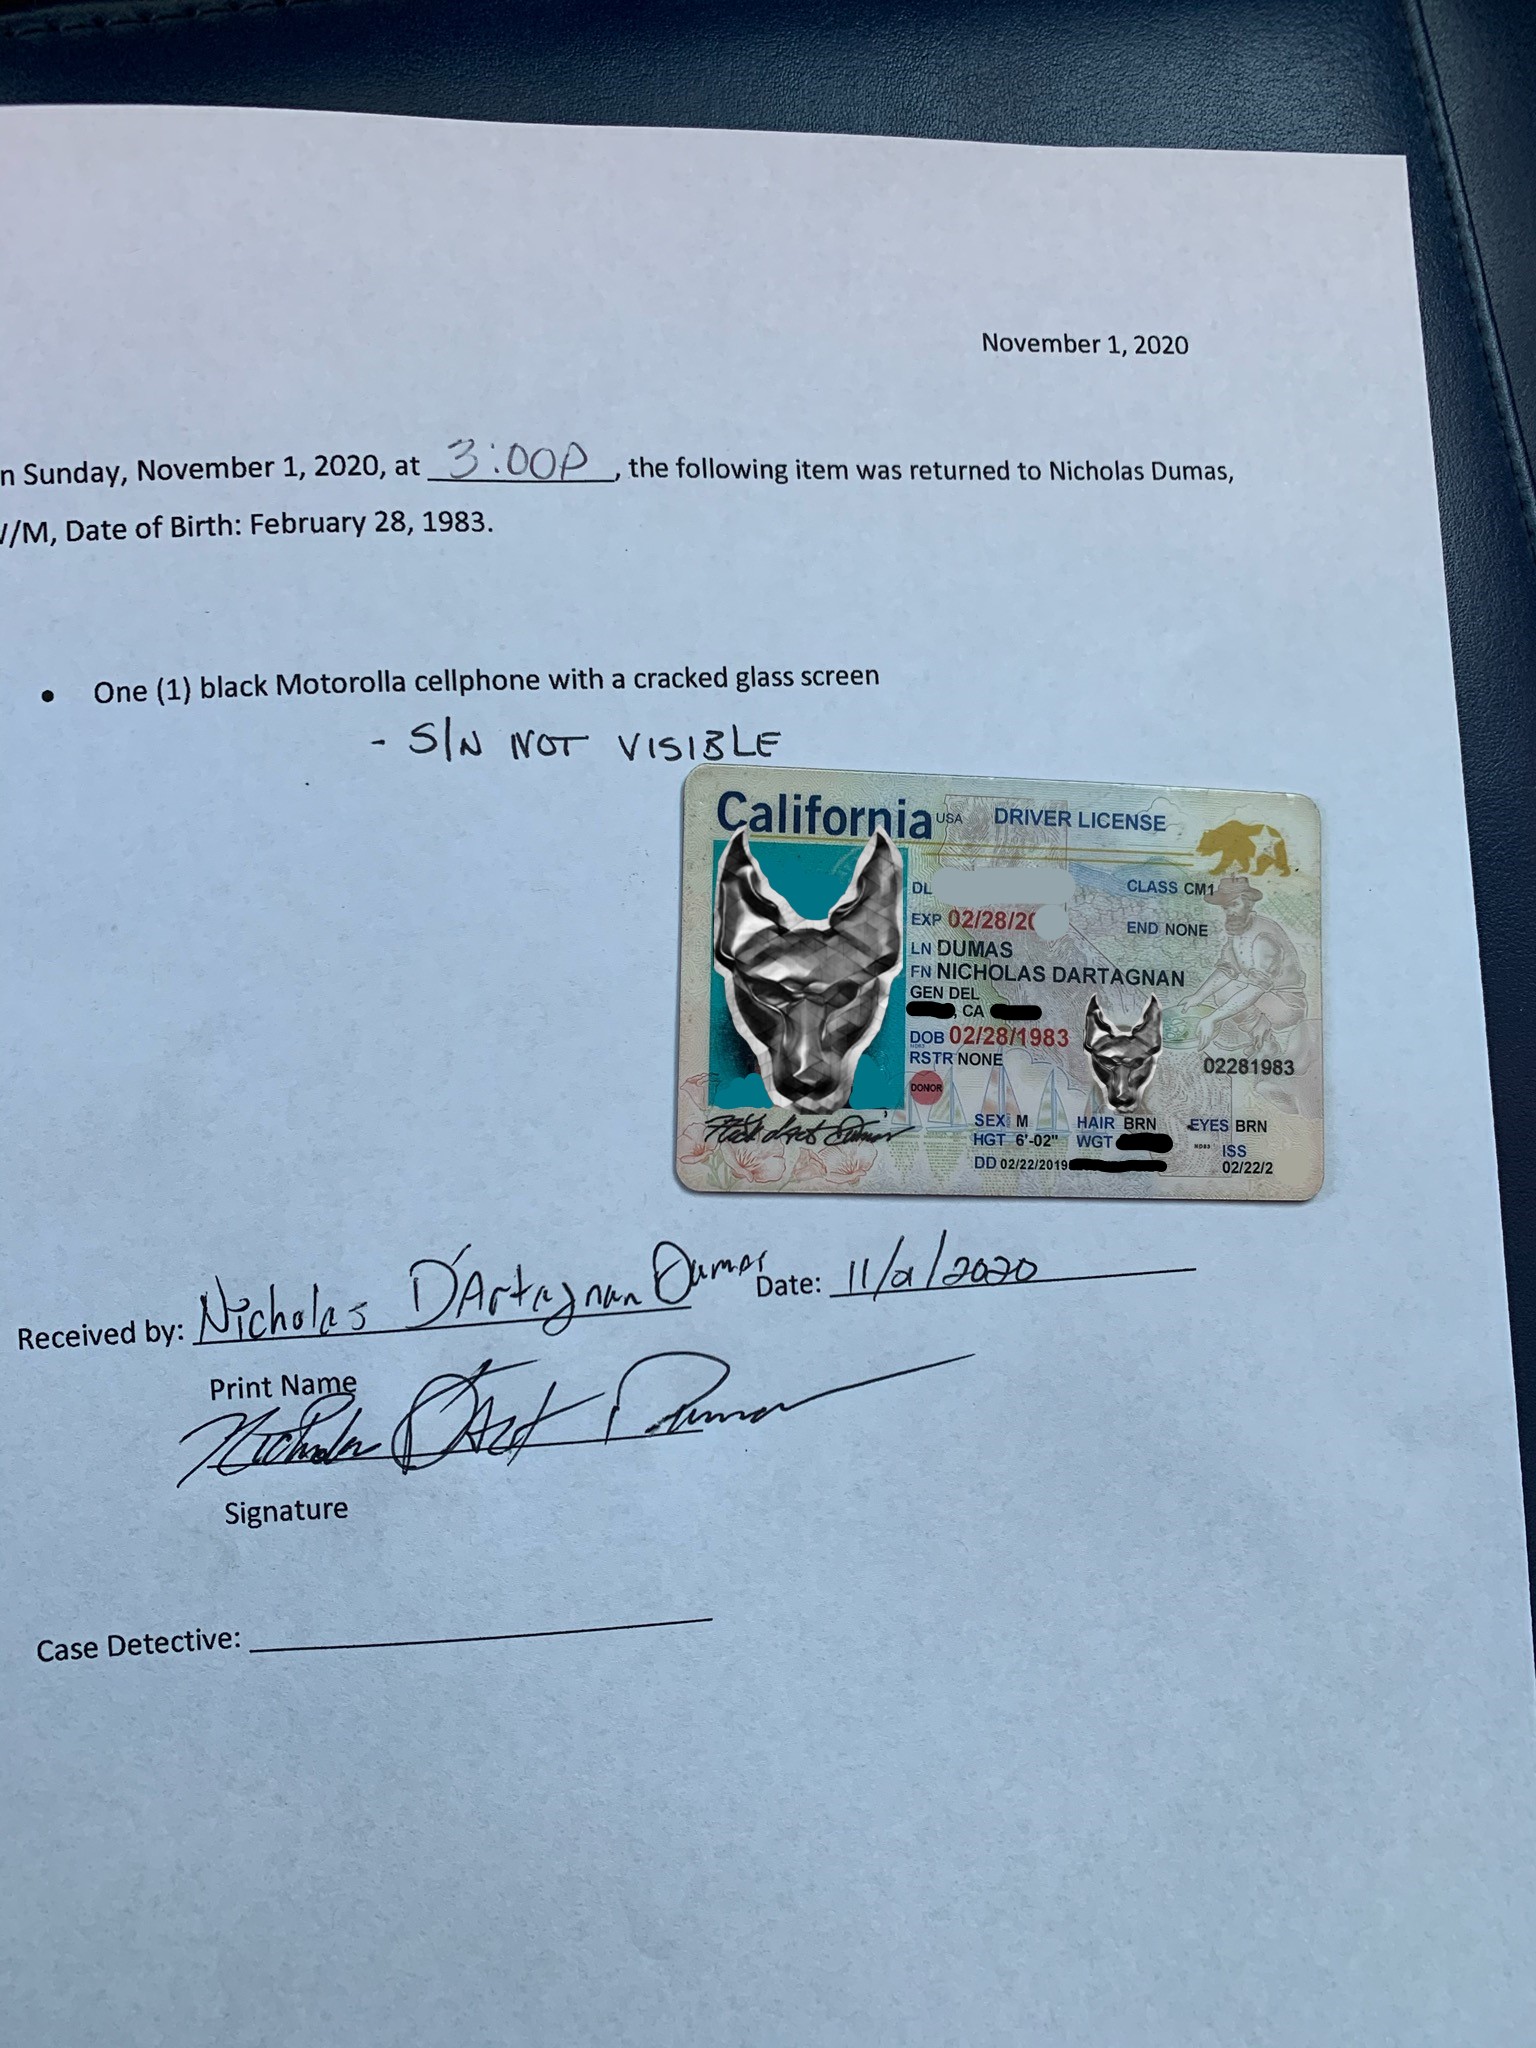 November 1, 2020
n Sunday, November 1, 2020, at 3:00P, the following item was returned to Nicholas Dumas,
/M, Date of Birth: February 28, 1983.
• One (1) black Motorolla cellphone with a cracked glass screen
- S/N NOT VISIBLE
California USA DRIVER LICENSE
DL CLASS CM1
EXP 02/28/20 END NONE
LN DUMAS
FN NICHOLAS DARTAGNAN
GEN DEL
, CA
DOB 02/28/1983
RSTR NONE 02281983
DONOR
SEX M HAIR BRN EYES BRN
HGT 6'-02" WGT ISS
DD 02/22/2019 02/22/2
Received by: Nicholas D'Artagnan Dumas Date: 11/01/2020
Print Name
Nicholas D'Art Dumas
Signature
Case Detective: